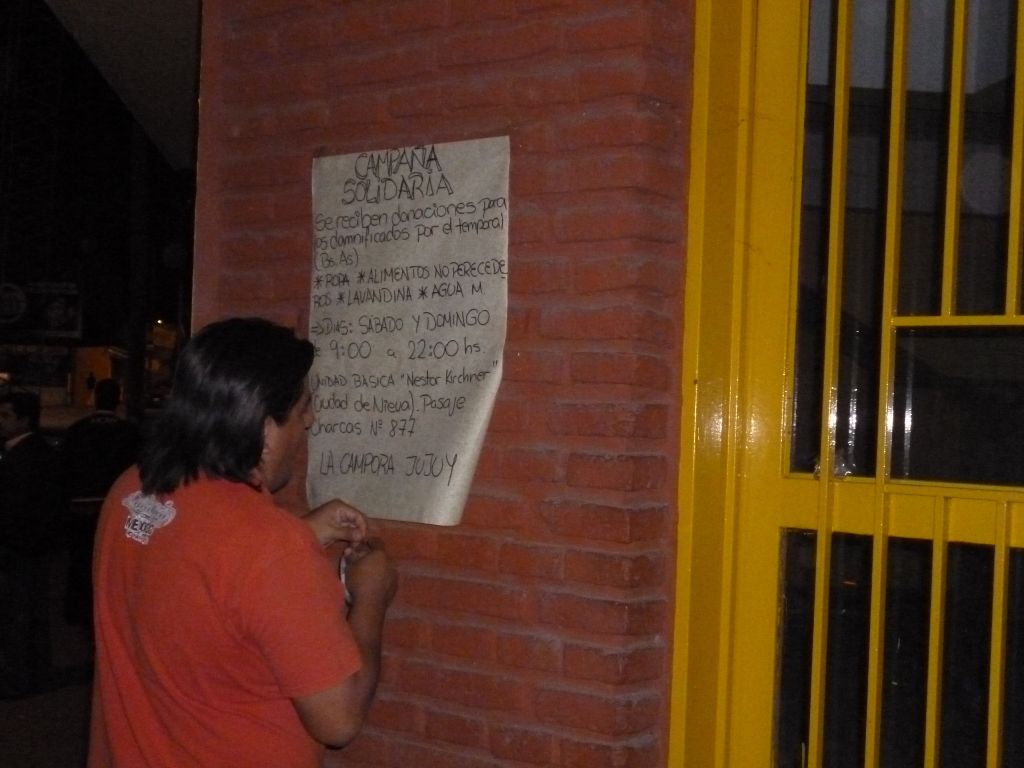 CAMPAÑA
SOLIDARIA
Se reciben donaciones para
los damnificados por el temporal
(Bs.As)
*ROPA *ALIMENTOS NO PERECEDE
ROS *LAVANDINA *AGUA M
=>DIAS: SÁBADO Y DOMINGO
9:00 a 22:00 hs.
UNIDAD BASICA "Nestor Kirchner"
(Ciudad de Nieva). Pasaje
Charcas Nº 877
LA CAMPORA JUJUY
MEXICO